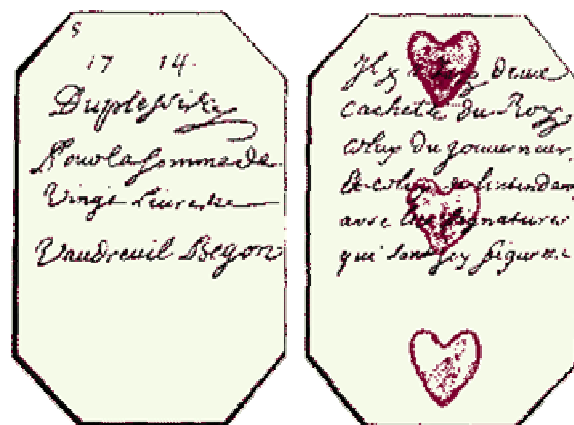 5
17 14
Duplessis
Pour la somme de
Vingt Livres
Vaudreuil Begon
Il y a deux
cachets du Roy
celuy du gouverneur
et celuy de l'intendant
avec les signatures
qui sont icy figurees